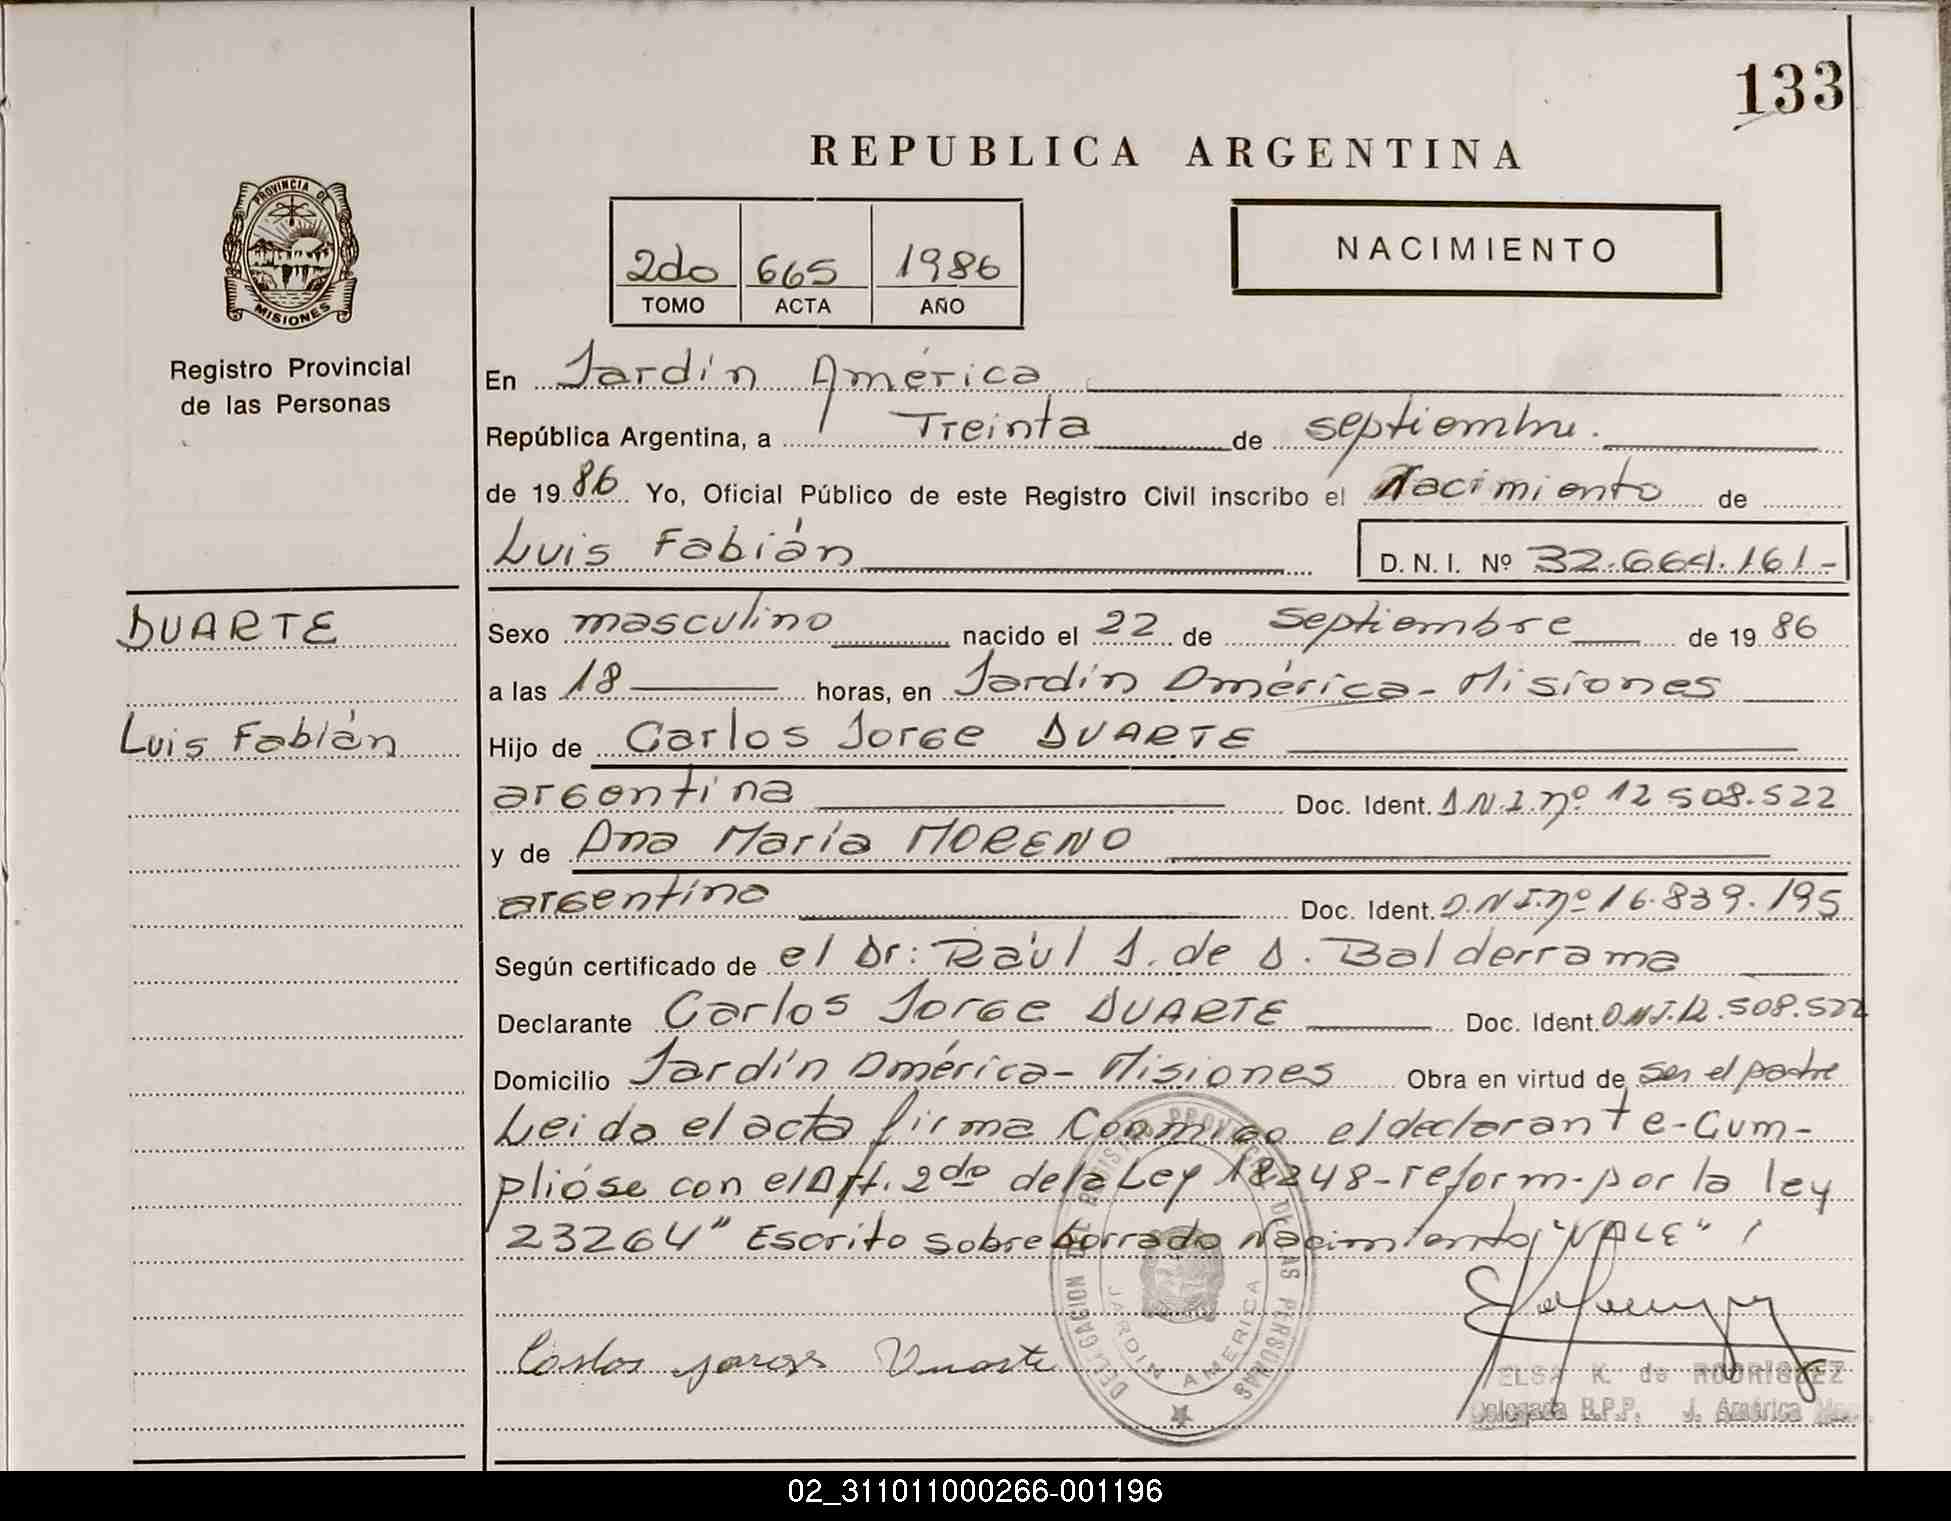 133
REPUBLICA ARGENTINA
PROVINCIA DE
MISIONES
Registro Provincial
de las Personas
2do 665 1986
TOMO ACTA AÑO
NACIMIENTO
En Jardín América
República Argentina, a Treinta de septiembre.
de 1986 Yo, Oficial Público de este Registro Civil inscribo el Nacimiento de
Luis Fabián D. N. I. Nº 32.664.161-
DUARTE
Luis Fabián
Sexo masculino nacido el 22 de septiembre de 1986
a las 18 horas, en Jardín América - Misiones
Hijo de Carlos Jorge DUARTE
argentina Doc. Ident. D.N.I. nº 12 508.522
y de Ana María MORENO
argentina Doc. Ident. D.N.I. nº 16.839.195
Según certificado de el Dr: Raúl J. de D. Balderrama
Declarante Carlos Jorge DUARTE Doc. Ident. D.N.I. 12.508.522
Domicilio Jardín América - Misiones Obra en virtud de ser el padre
Leida el acta firma Conmigo el declarante - Cum-
plióse con el Art. 2do de la Ley 18248 - reform. por la ley
23264" Escrito sobre borrado Nacimiento, "VALE"
Carlos Jorge Duarte
DELEGACION DE REGISTRO PROVINCIAL DE LAS PERSONAS
JARDIN AMERICA
ELSA K. de RODRIGUEZ
Delegada R.P.P. J. América
02_311011000266-001196